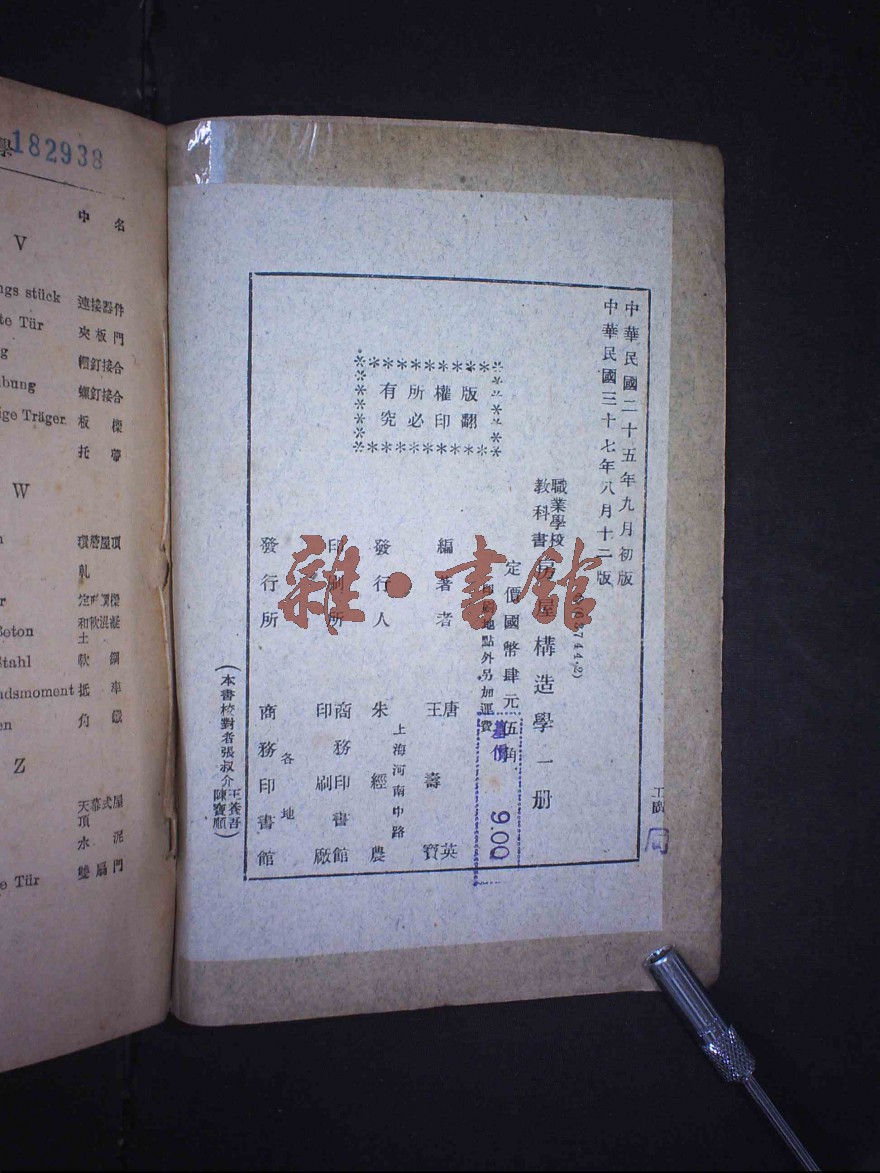 學
182938
中名
V
ngs stück 連接器件
te Tür 夾板門
g 帽釘接合
bung 螺釘接合
ige Träger 板樑
托帶
W
軋
Beton 和軟混凝土
Stahl 軟鋼
adsmoment 抵率
en 角鐵
Z
天幕式屋頂
水泥
te Tür 雙扇門
中華民國二十五年九月初版
中華民國三十七年八月十二版
職業學校教科書 房屋構造學一册
定價國幣肆元伍角
印刷地點外另加運費
9.00
版權所有
翻印必究
編著者 唐英 王壽寶
發行人 朱經農
上海河南中路
印刷所 商務印書館印刷廠
發行所 商務印書館
各地
(本書校對者張叔介王養吾陳寶順)
雜·書館